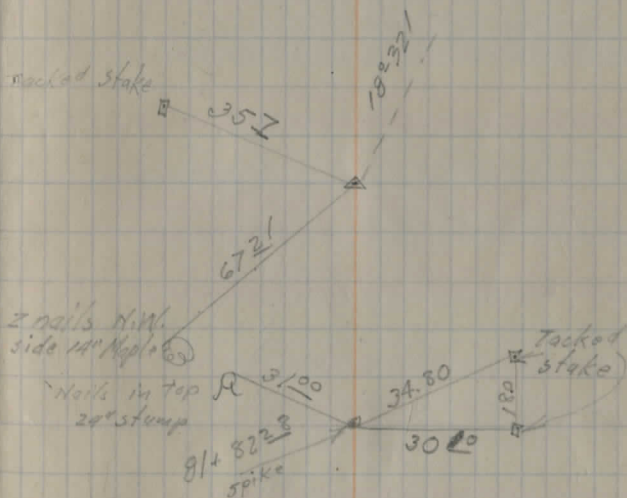 Tacked stake
35 7
18°32'
67 21
2 nails N.W.
side 14" Maple
Nails in top
24" stump
31.00
34.80
Tacked
stake
18.0
81+82 28
spike